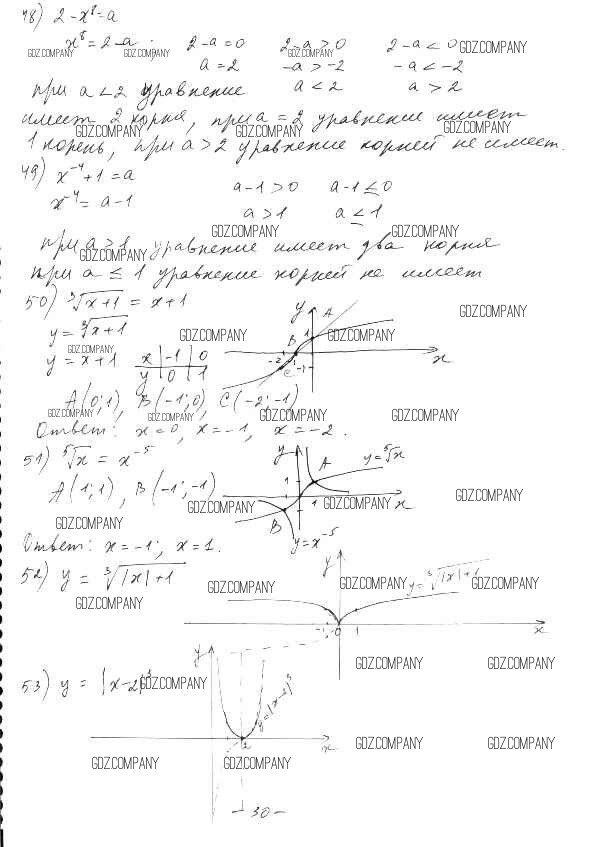 48) 2 - x⁸ = a
x⁸ = 2 - a ; 2 - a = 0 2 - a > 0 2 - a < 0 GDZ.COMPANY
GDZ.COMPANY GDZ.COMPANY GDZ.COMPANY
a = 2 -a > -2 -a < -2
при a < 2 уравнение a < 2 a > 2
имеет 2 корня, при a = 2 уравнение имеет
GDZ.COMPANY GDZ.COMPANY GDZ.COMPANY
1 корень, при a > 2 уравнение корней не имеет.
49) x⁻⁴ + 1 = a
x⁻⁴ = a - 1 a - 1 > 0 a - 1 ≤ 0
a > 1 a ≤ 1
GDZ.COMPANY GDZ.COMPANY
при a > 1 уравнение имеет два корня
GDZ.COMPANY
при a ≤ 1 уравнение корней не имеет
50) ³√x+1 = x + 1 y A GDZ.COMPANY
y = ³√x+1 GDZ.COMPANY B 1 GDZ.COMPANY GDZ.COMPANY
GDZ.COMPANY
y = x + 1 x | -1 | 0 -2 -1 C x
y | 0 | 1
A(0; 1), B(-1; 0), C(-2; -1)
GDZ.COMPANY GDZ.COMPANY GDZ.COMPANY GDZ.COMPANY
Ответ: x = 0, x = -1, x = -2.
51) ⁵√x = x⁻⁵ y y = ⁵√x
A(1; 1), B(-1; -1) 1 A GDZ.COMPANY
GDZ.COMPANY B 1 GDZ.COMPANY x
Ответ: x = -1; x = 1. y = x⁻⁵
52) y = ³√|x| + 1 y y = ³√|x| + 1
GDZ.COMPANY GDZ.COMPANY GDZ.COMPANY
GDZ.COMPANY -1 0 1 x
53) y = |x - 2|³ y y = |x - 2|³
GDZ.COMPANY GDZ.COMPANY GDZ.COMPANY
2 x GDZ.COMPANY GDZ.COMPANY
GDZ.COMPANY GDZ.COMPANY
- 30 -